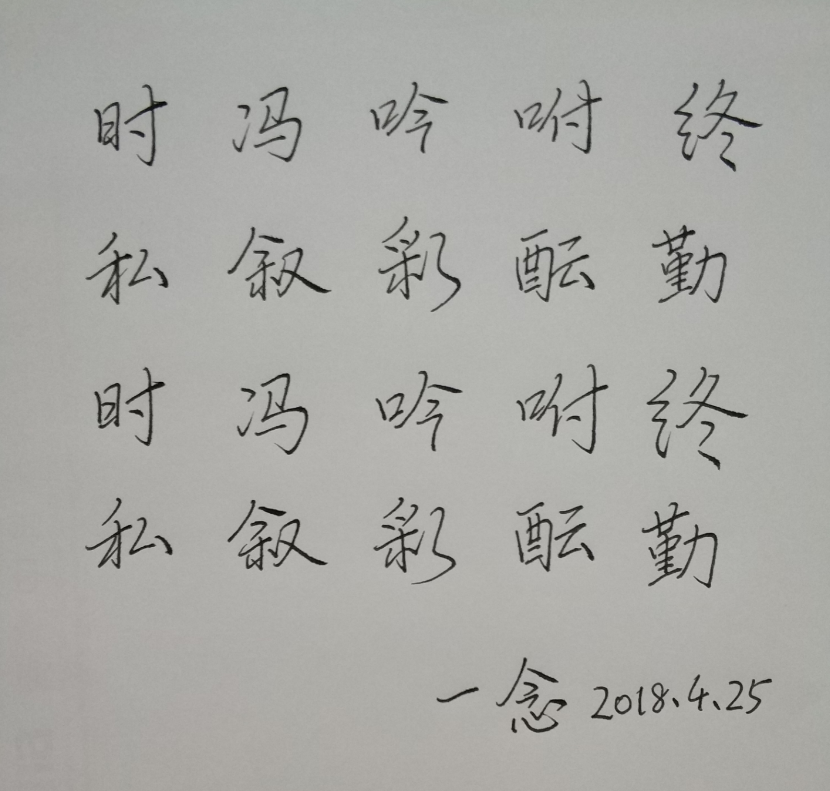 时冯吟咐终
私叙彩酝勤
时冯吟咐终
私叙彩酝勤
一念 2018.4.25